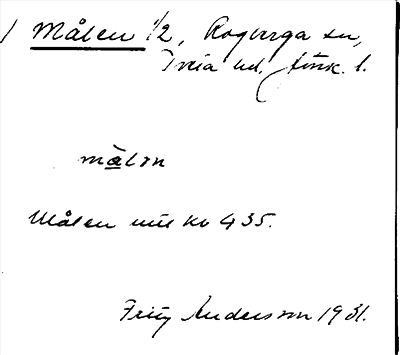 Målen 1/2, Rogberga sn,
Tveta hd, Jönk. l.
målən
Målen mtl kv 435.
Fritz Anderson 1931.